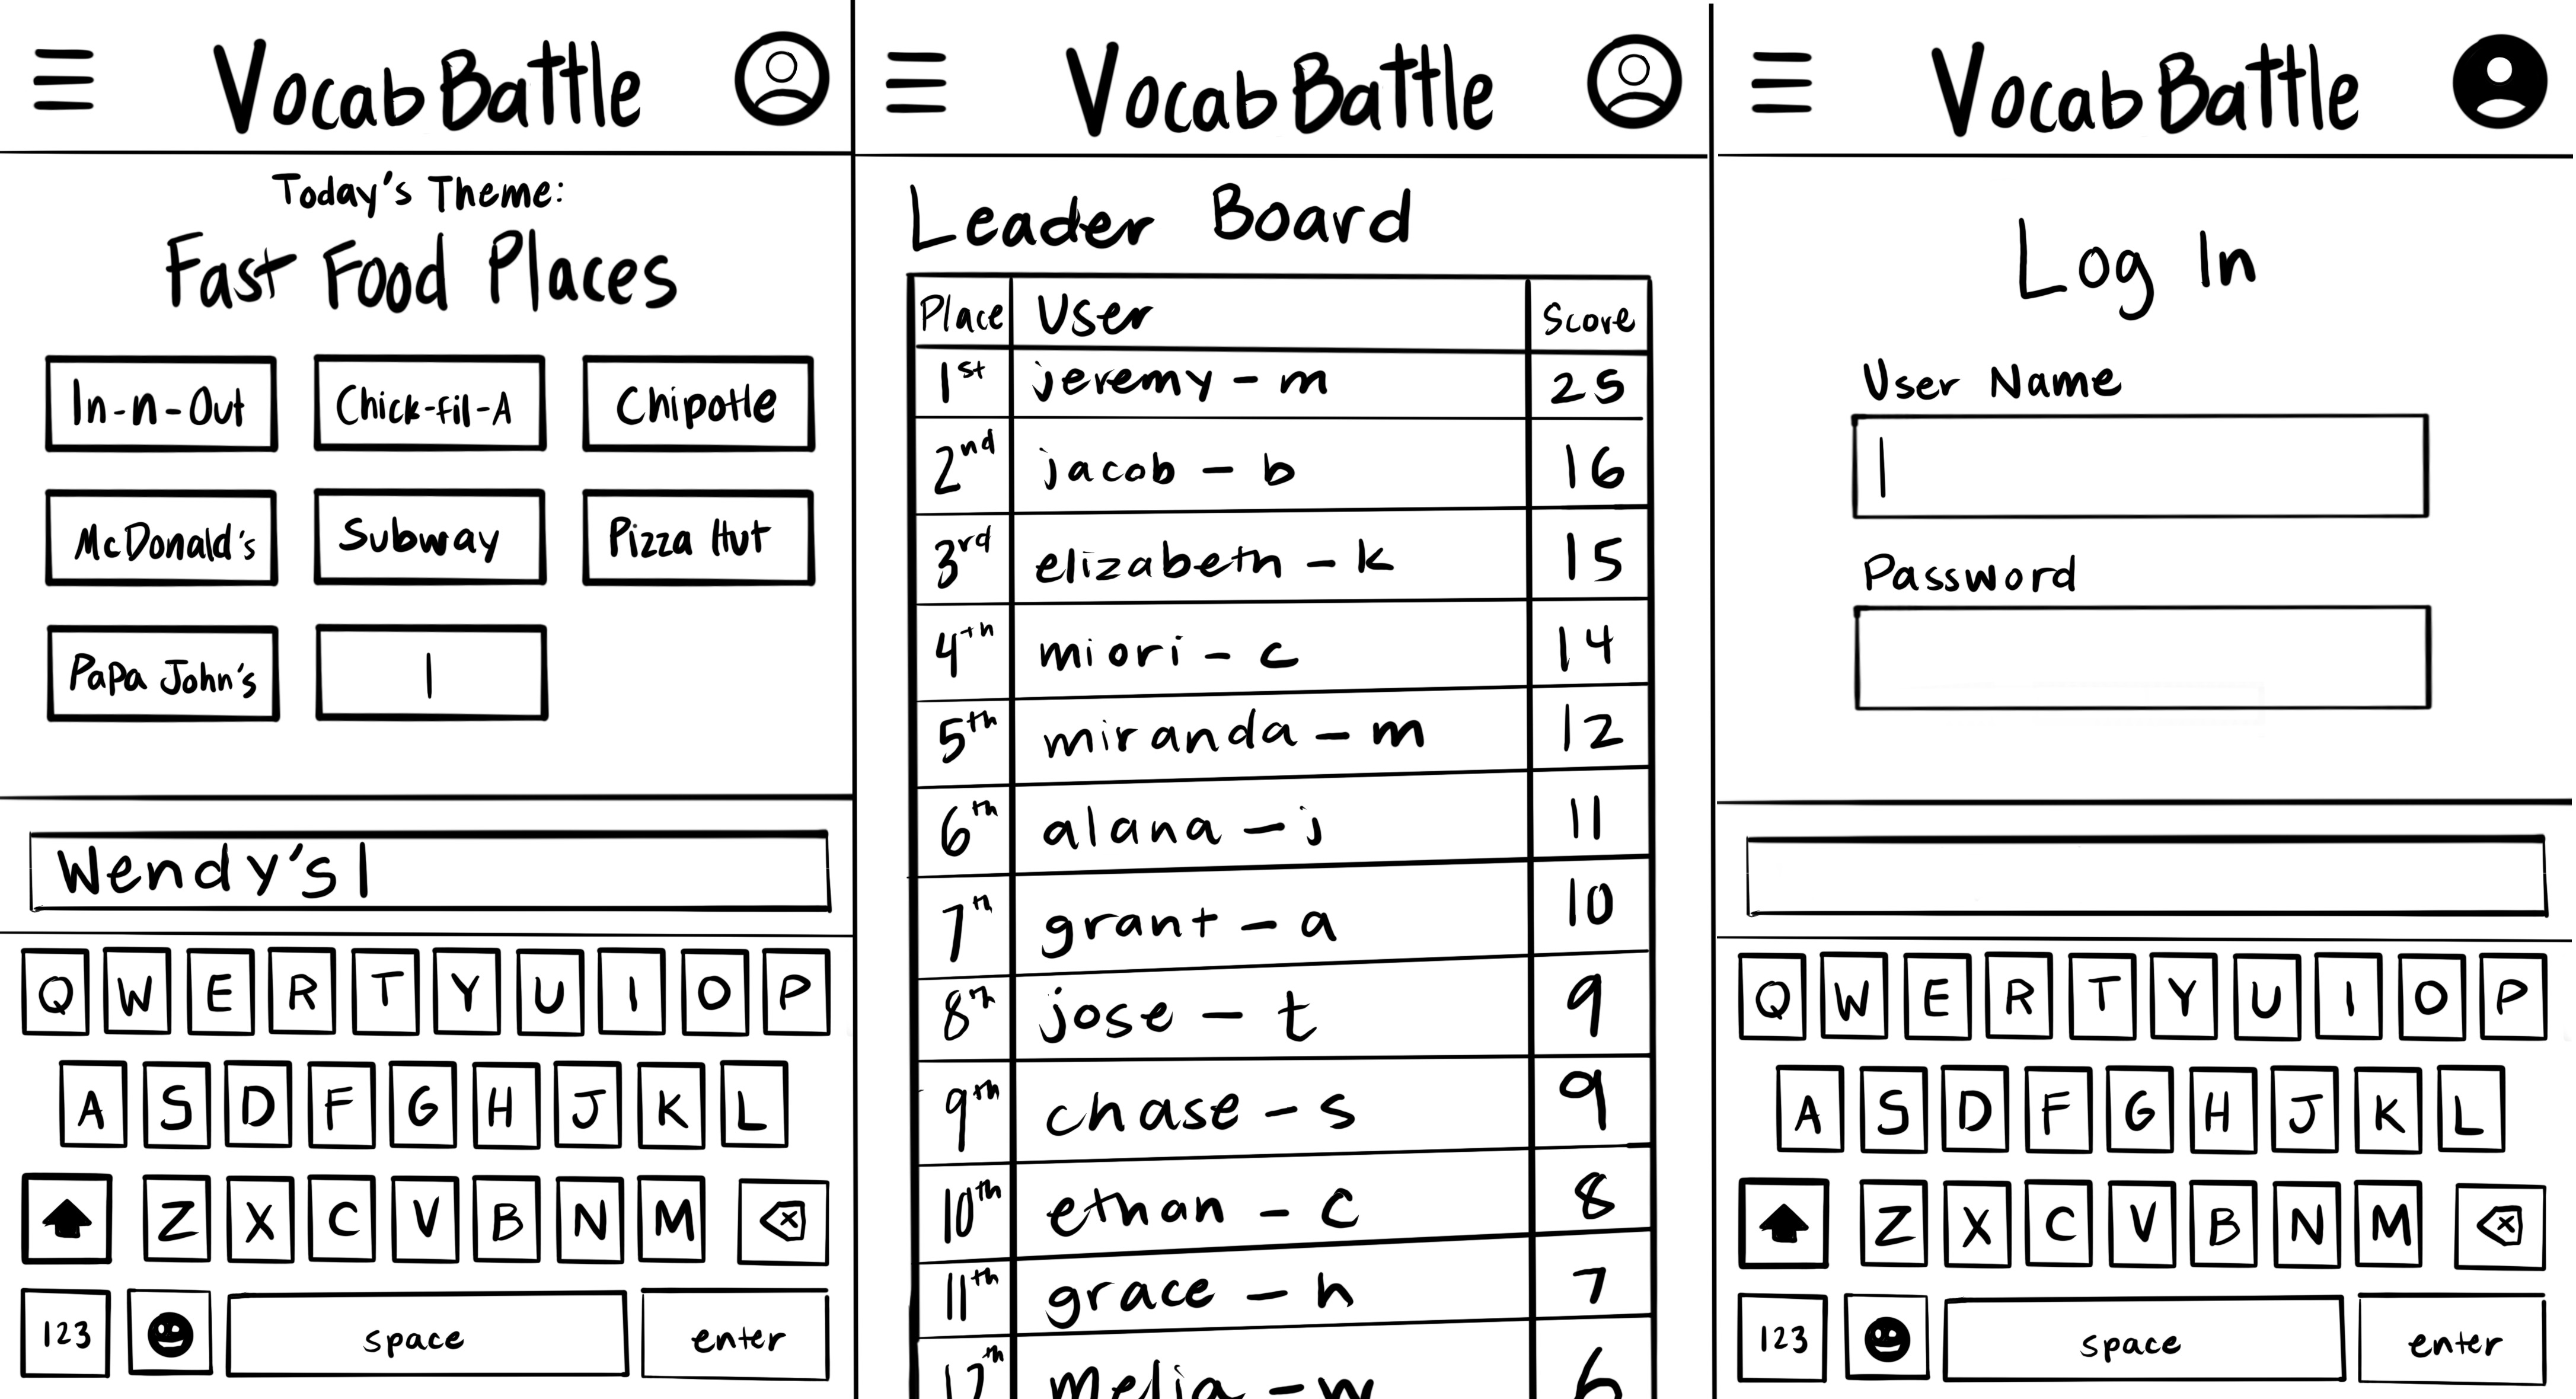 VocabBattle
Today's Theme:
Fast Food Places
In-n-Out Chick-fil-A Chipotle
McDonald's Subway Pizza Hut
Papa John's
Wendy's
Q W E R T Y U I O P
A S D F G H J K L
Z X C V B N M
123 space enter
VocabBattle
Leader Board
Place User Score
1st jeremy - m 25
2nd jacob - b 16
3rd elizabeth - k 15
4th miori - c 14
5th miranda - m 12
6th alana - j 11
7th grant - a 10
8th jose - t 9
9th chase - s 9
10th ethan - c 8
11th grace - h 7
12th melia - w 6
VocabBattle
Log In
User Name
Password
Q W E R T Y U I O P
A S D F G H J K L
Z X C V B N M
123 space enter